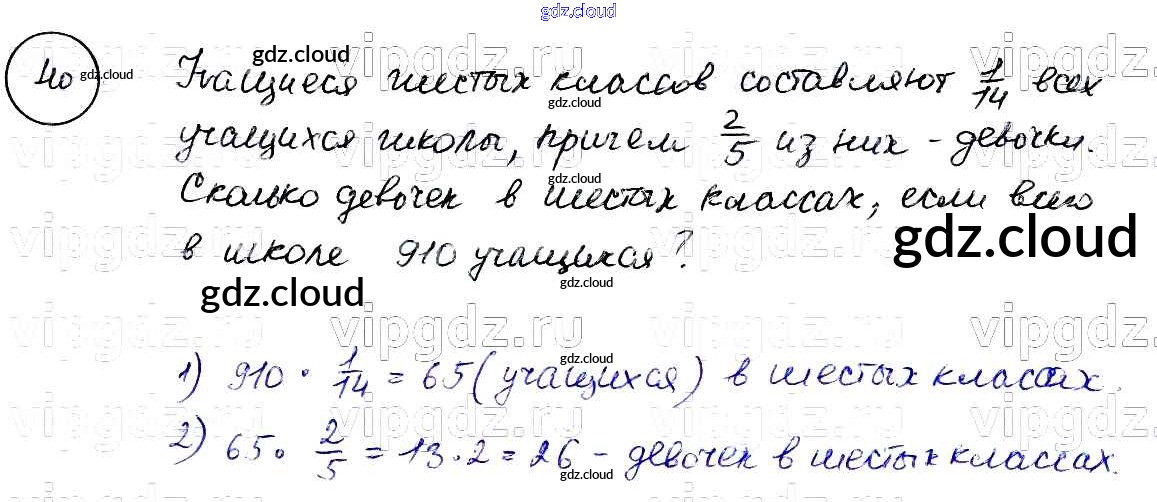 gdz.cloud
40 Учащиеся шестых классов составляют 1/14 всех
учащихся школы, причем 2/5 из них - девочки.
Сколько девочек в шестых классах, если всего
в школе 910 учащихся?
gdz.cloud
gdz.cloud
1) 910 · 1/14 = 65 (учащихся) в шестых классах.
2) 65 · 2/5 = 13 · 2 = 26 - девочек в шестых классах.